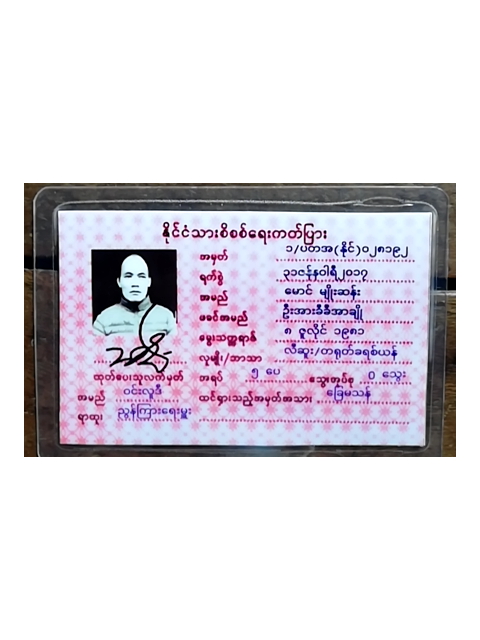 နိုင်ငံသားစိစစ်ရေးကတ်ပြား
အမှတ် ၁/ပတအ(နိုင်)၀၂၈၁၉၂
ရက်စွဲ ၃၁ဇန်နဝါရီ၂၀၁၇
အမည် မောင် မျိုးဆန်း
ဖခင်အမည် ဦးအားခီခီအာချို
မွေးသက္ကရာဇ် ၈ ဇူလိုင် ၁၉၈၁
လူမျိုး/ဘာသာ လီဆူး/တရုတ်ခရစ်ယန်
အရပ် ၅ ပေ သွေးအုပ်စု O သွေး
ထင်ရှားသည့်အမှတ်အသား ခြေမသန်
ထုတ်ပေးသူလက်မှတ်
အမည် ဝင်းလှူဒီ
ရာထူး ညွှန်ကြားရေးမှူး